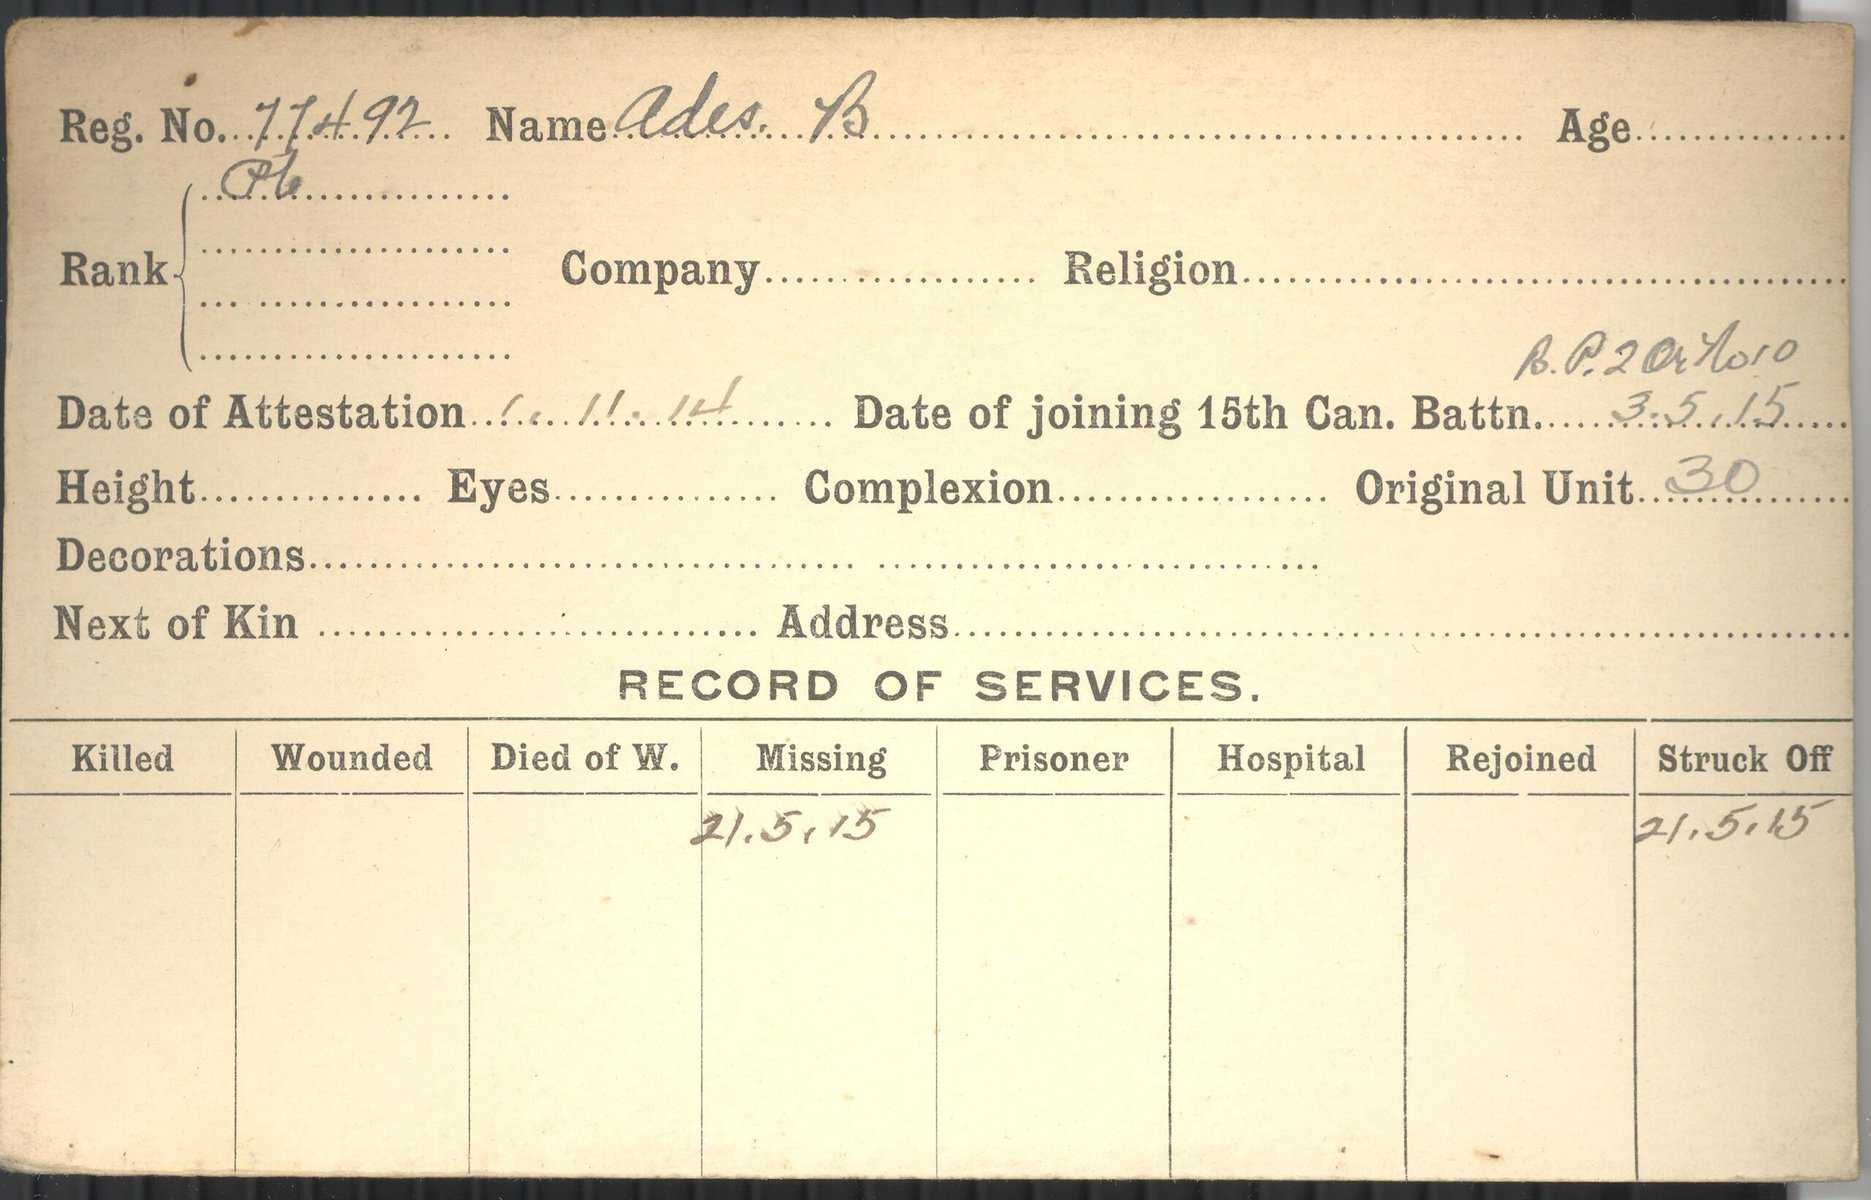 Reg. No. 77492 Name Ades. B Age
Pte
Rank Company Religion
B. P. 2 Or No 10
Date of Attestation 1. 11. 14 Date of joining 15th Can. Battn. 3.5.15
Height Eyes Complexion Original Unit 30
Decorations
Next of Kin Address
RECORD OF SERVICES.
Killed Wounded Died of W. Missing Prisoner Hospital Rejoined Struck Off
21.5.15 21.5.15